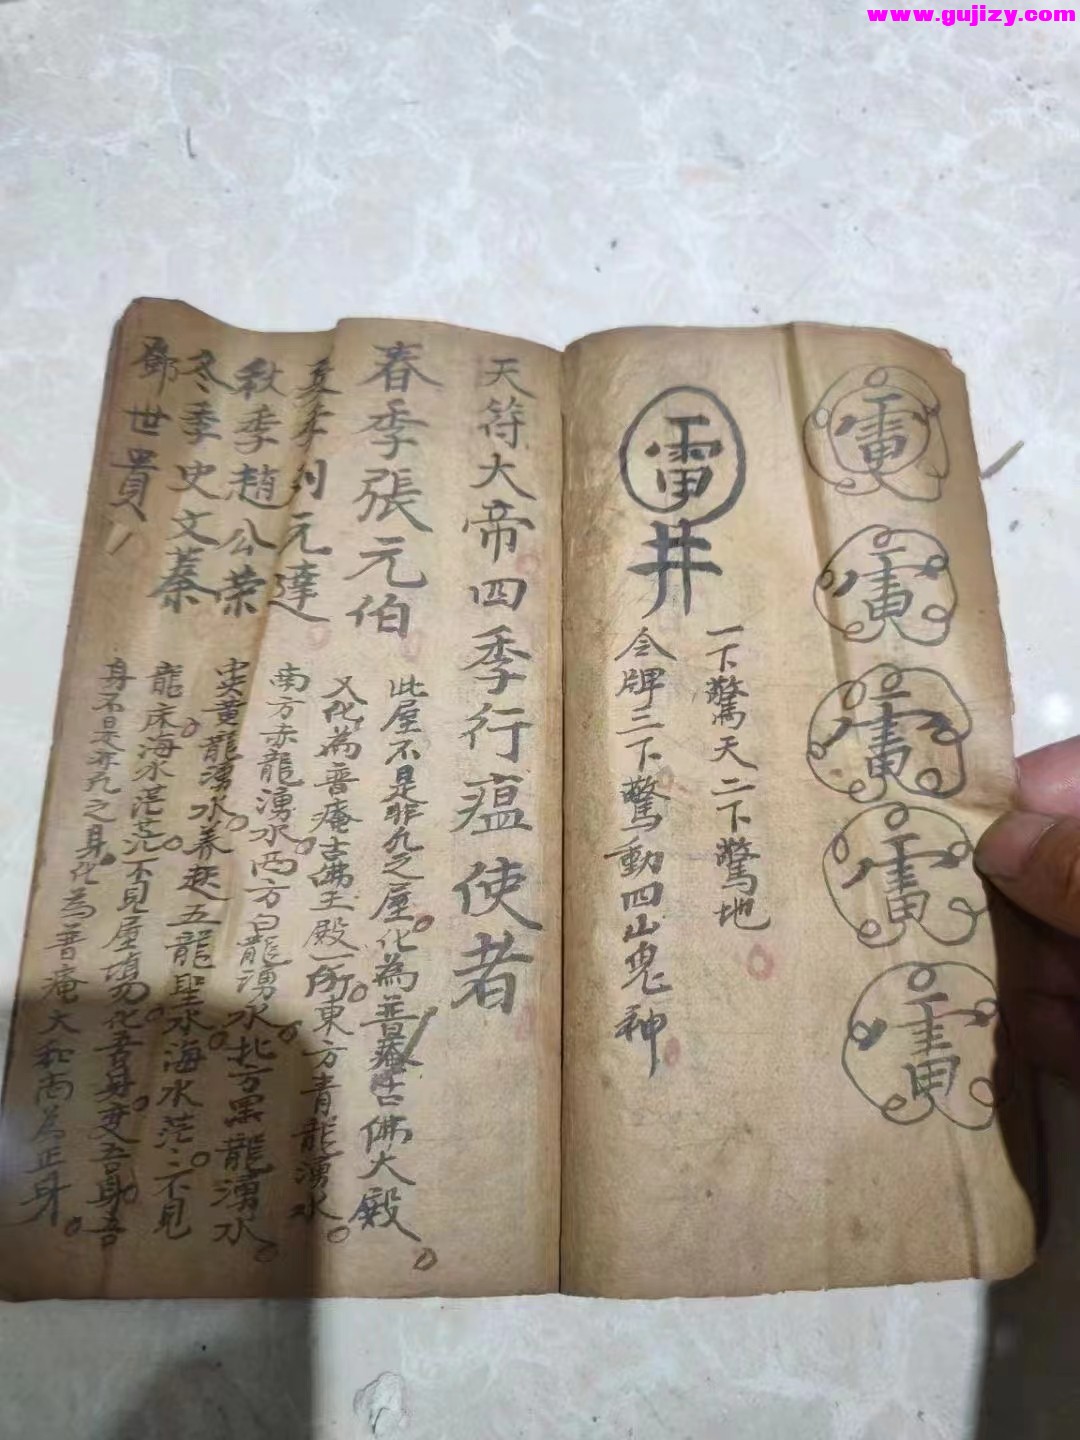 www.gujizy.com
雷
雷
雷
雷
雷
雷井
一下驚天二下驚地
令牌三下驚動四山鬼神
天符大帝四季行瘟使者
春季張元伯
夏季刘元達
秋季趙公荣
冬季史文業
鄧世貴
此屋不是非凡之屋化為普庵古佛大殿
又化為普庵古佛玉殿一所東方青龍湧水
南方赤龍湧水西方白龍湧水北方黑龍湧水
中央黄龍湧水养起五龍聖水海水茫〻不見
龍床海水茫茫不見屋場勿化吾身变吾身吾
身不是非凡之身化為普庵大和尚為正身